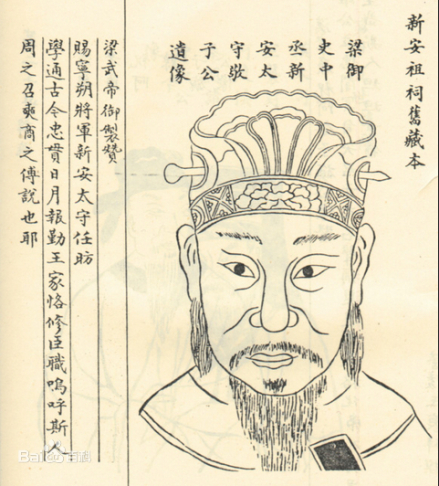 新安祖祠舊藏本
梁御
史中
丞新
安太
守敬
子公
遺像
梁武帝御製贊
賜寧朔將軍新安太守任昉
學通古今忠貫日月報勤王家恪修臣職嗚呼斯人
周之召奭商之傅說也耶
Bai百科